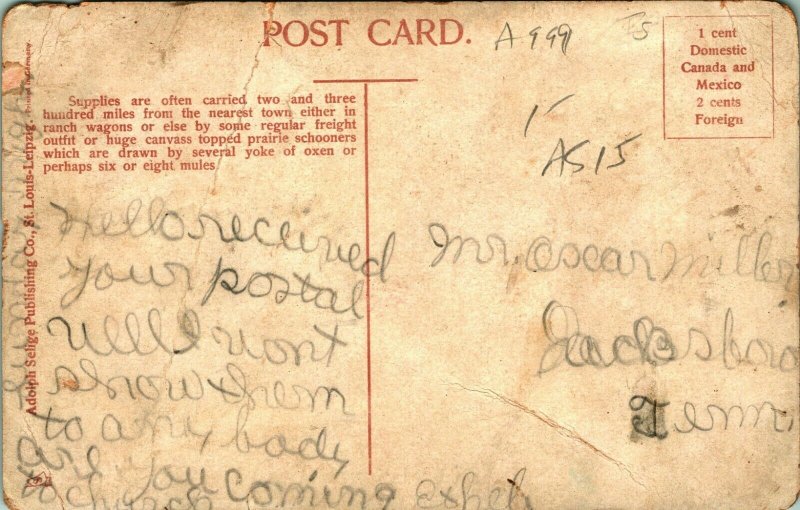 POST CARD.
A999
F5
1 cent
Domestic
Canada and
Mexico
2 cents
Foreign
AS15
Supplies are often carried two and three
hundred miles from the nearest town either in
ranch wagons or else by some regular freight
outfit or huge canvass topped prairie schooners
which are drawn by several yoke of oxen or
perhaps six or eight mules
Adolph Selige Publishing Co., St. Louis-Leipzig. Printed in Germany
Hello received
your postal
well I wont
show them
to any body
are you coming
to church
Mr. Oscar Miller
Jacksboro
Tenn.